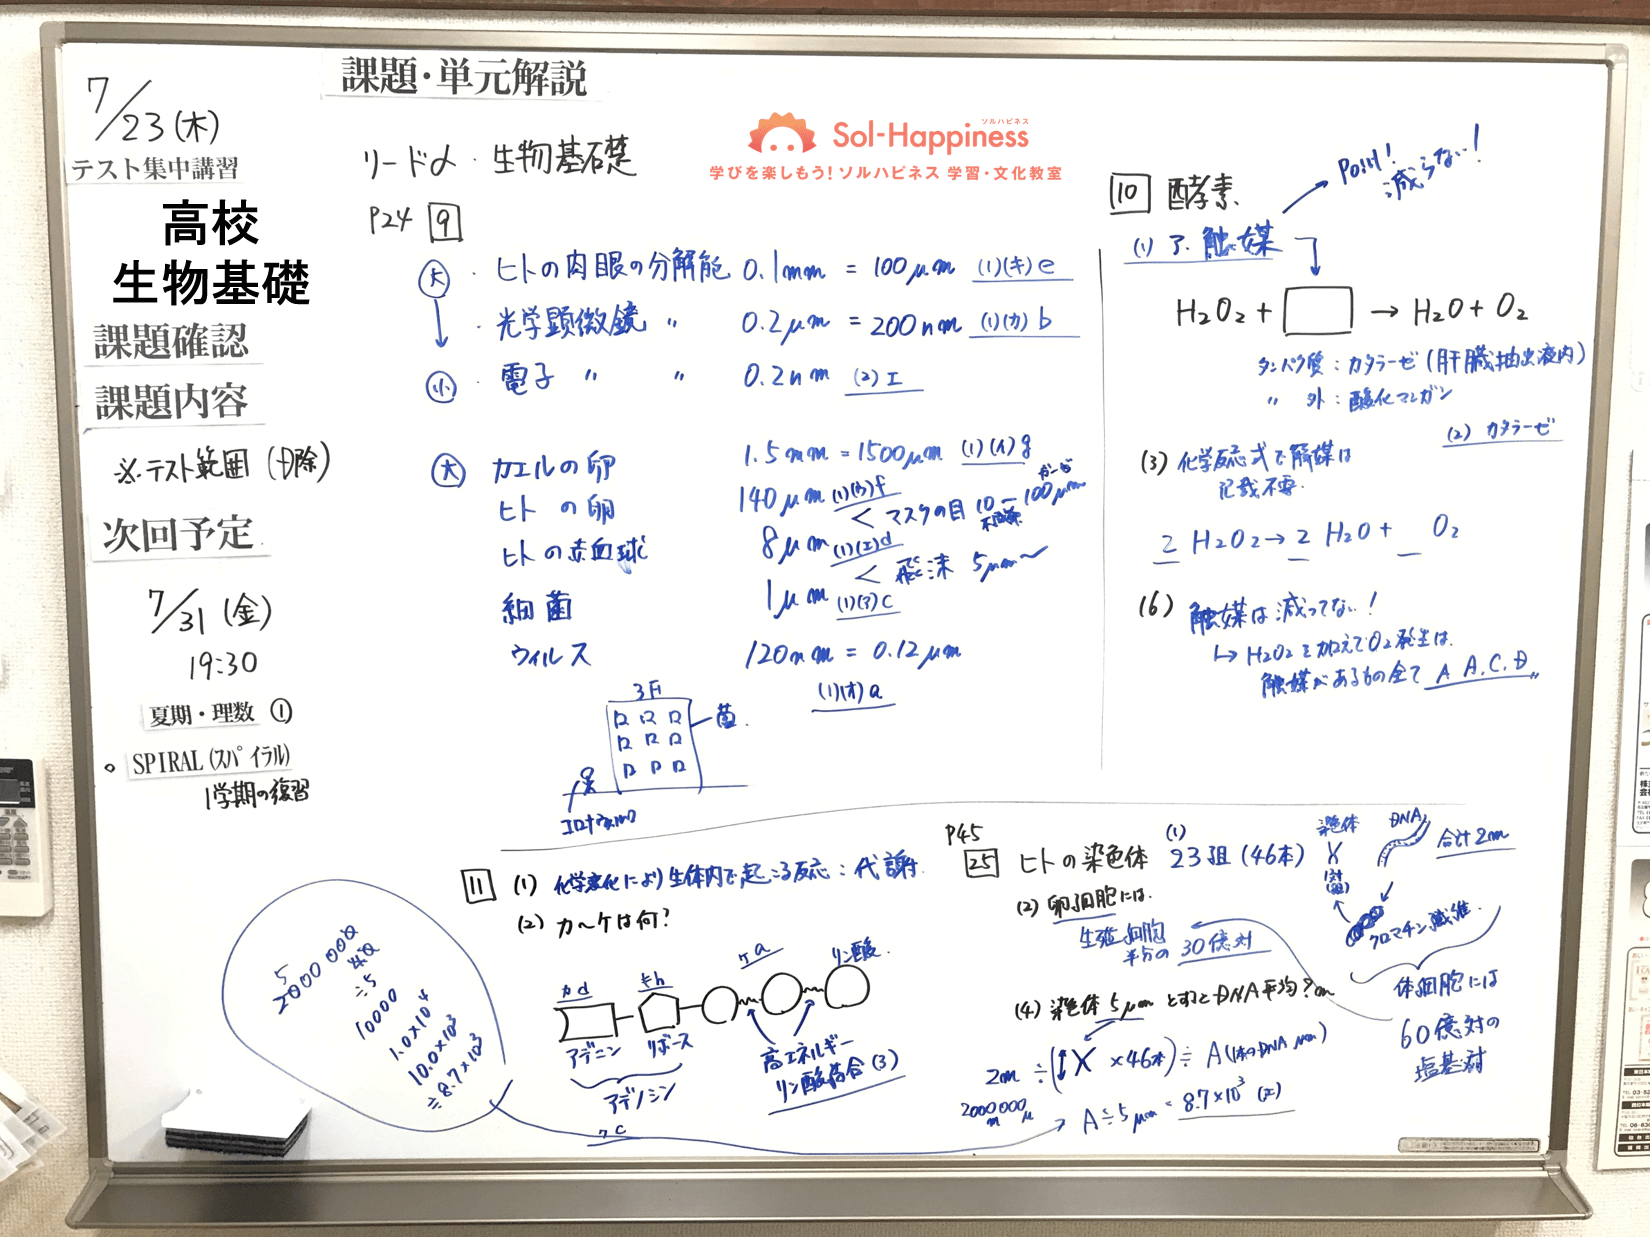 課題・単元解説
7/23(木)
テスト集中講習
高校
生物基礎
課題確認
課題内容
※テスト範囲(切除)
次回予定
7/31(金)
19:30
夏期・理数 ①
SPIRAL(スパイラル)
1学期の復習
ソルハピネス
Sol-Happiness
学びを楽しもう!ソルハピネス 学習・文化教室
リードα・生物基礎
P24 9
大 ・ヒトの肉眼の分解能 0.1mm = 100μm (1)(キ)e
・光学顕微鏡 〃 0.2μm = 200nm (1)(カ)b
小 ・電子 〃 〃 0.2nm (2)エ
大 カエルの卵 1.5mm = 1500μm (1)(イ)g
ヒトの卵 140μm (1)(ウ)f
< マスクの目 10-100μm
ガーゼ
不織布
ヒトの赤血球 8μm (1)(エ)d
< 飛沫 5μm~
細菌 1μm (1)(ア)c
ウィルス 120nm = 0.12μm
(1)(オ)a
3F
菌.
コロナウィルス
10 酵素
Point!
減らない!
(1) ア. 触媒
H2O2 + □ → H2O + O2
タンパク質:カタラーゼ(肝臓抽出液内)
〃 外:酸化マンガン
(2) カタラーゼ
(3) 化学反応式で触媒は
記載不要.
2 H2O2 → 2 H2O + _ O2
(6) 触媒は減ってない!
↳ H2O2を加えてO2発生は.
触媒があるもの全て A A.C.D
11 (1) 化学変化により生体内で起こる反応:代謝.
(2) カ~ケは何?
カd キh ケa リン酸.
アデニン リボース
高エネルギー
リン酸結合(3)
アデノシン
クc
5
2000000
46
≒5
10000
1.0×10⁴
10.0×10³
≒8.7×10³
P45
25 ヒトの染色体 (1) 23組(46本)
染色体
1対
(組)
DNA
合計2m
クロマチン繊維.
(2) 卵細胞には.
生殖細胞
半分の 30億対
体細胞には
60億対の
塩基対
(4) 染色体 5μmとするとDNA平均?m
2m ÷ (↕X ×46本) ÷ A(1本のDNA μm)
2000000
m μ
→ A÷5μm = 8.7×10³ (エ)